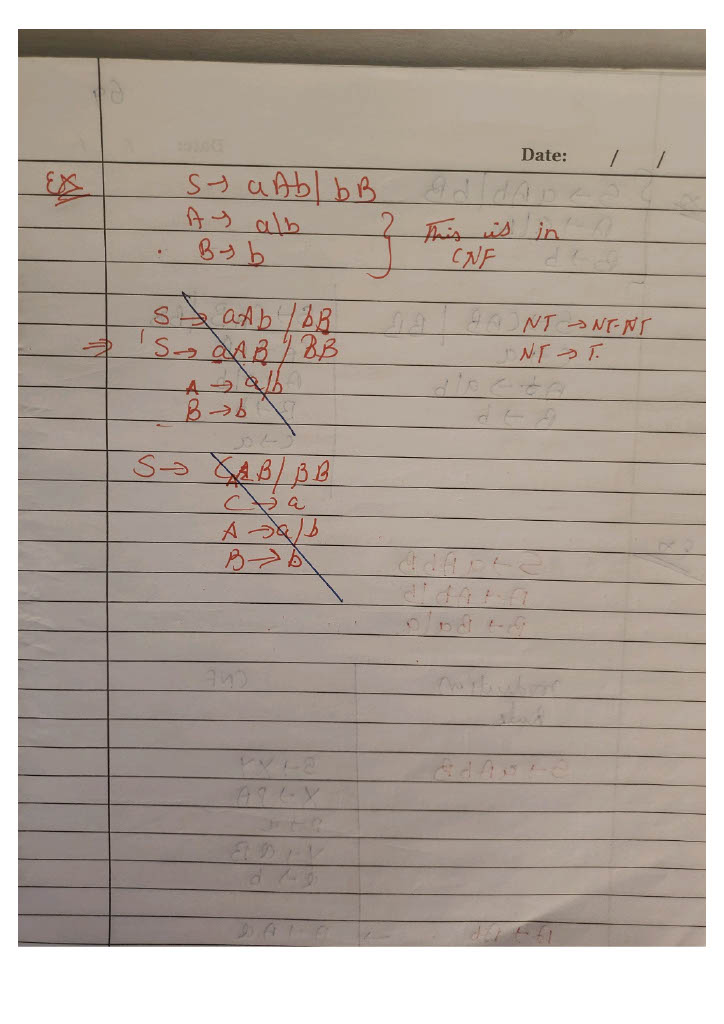 Date: / /
Ex S → aAb | bB
A → a|b
B → b
} This is in CNF
S → aAb / bB NT → NT·NT
⇒ S → aAB / BB NT → T.
A → a/b
B → b
S → CAB / BB
C → a
A → a/b
B → b